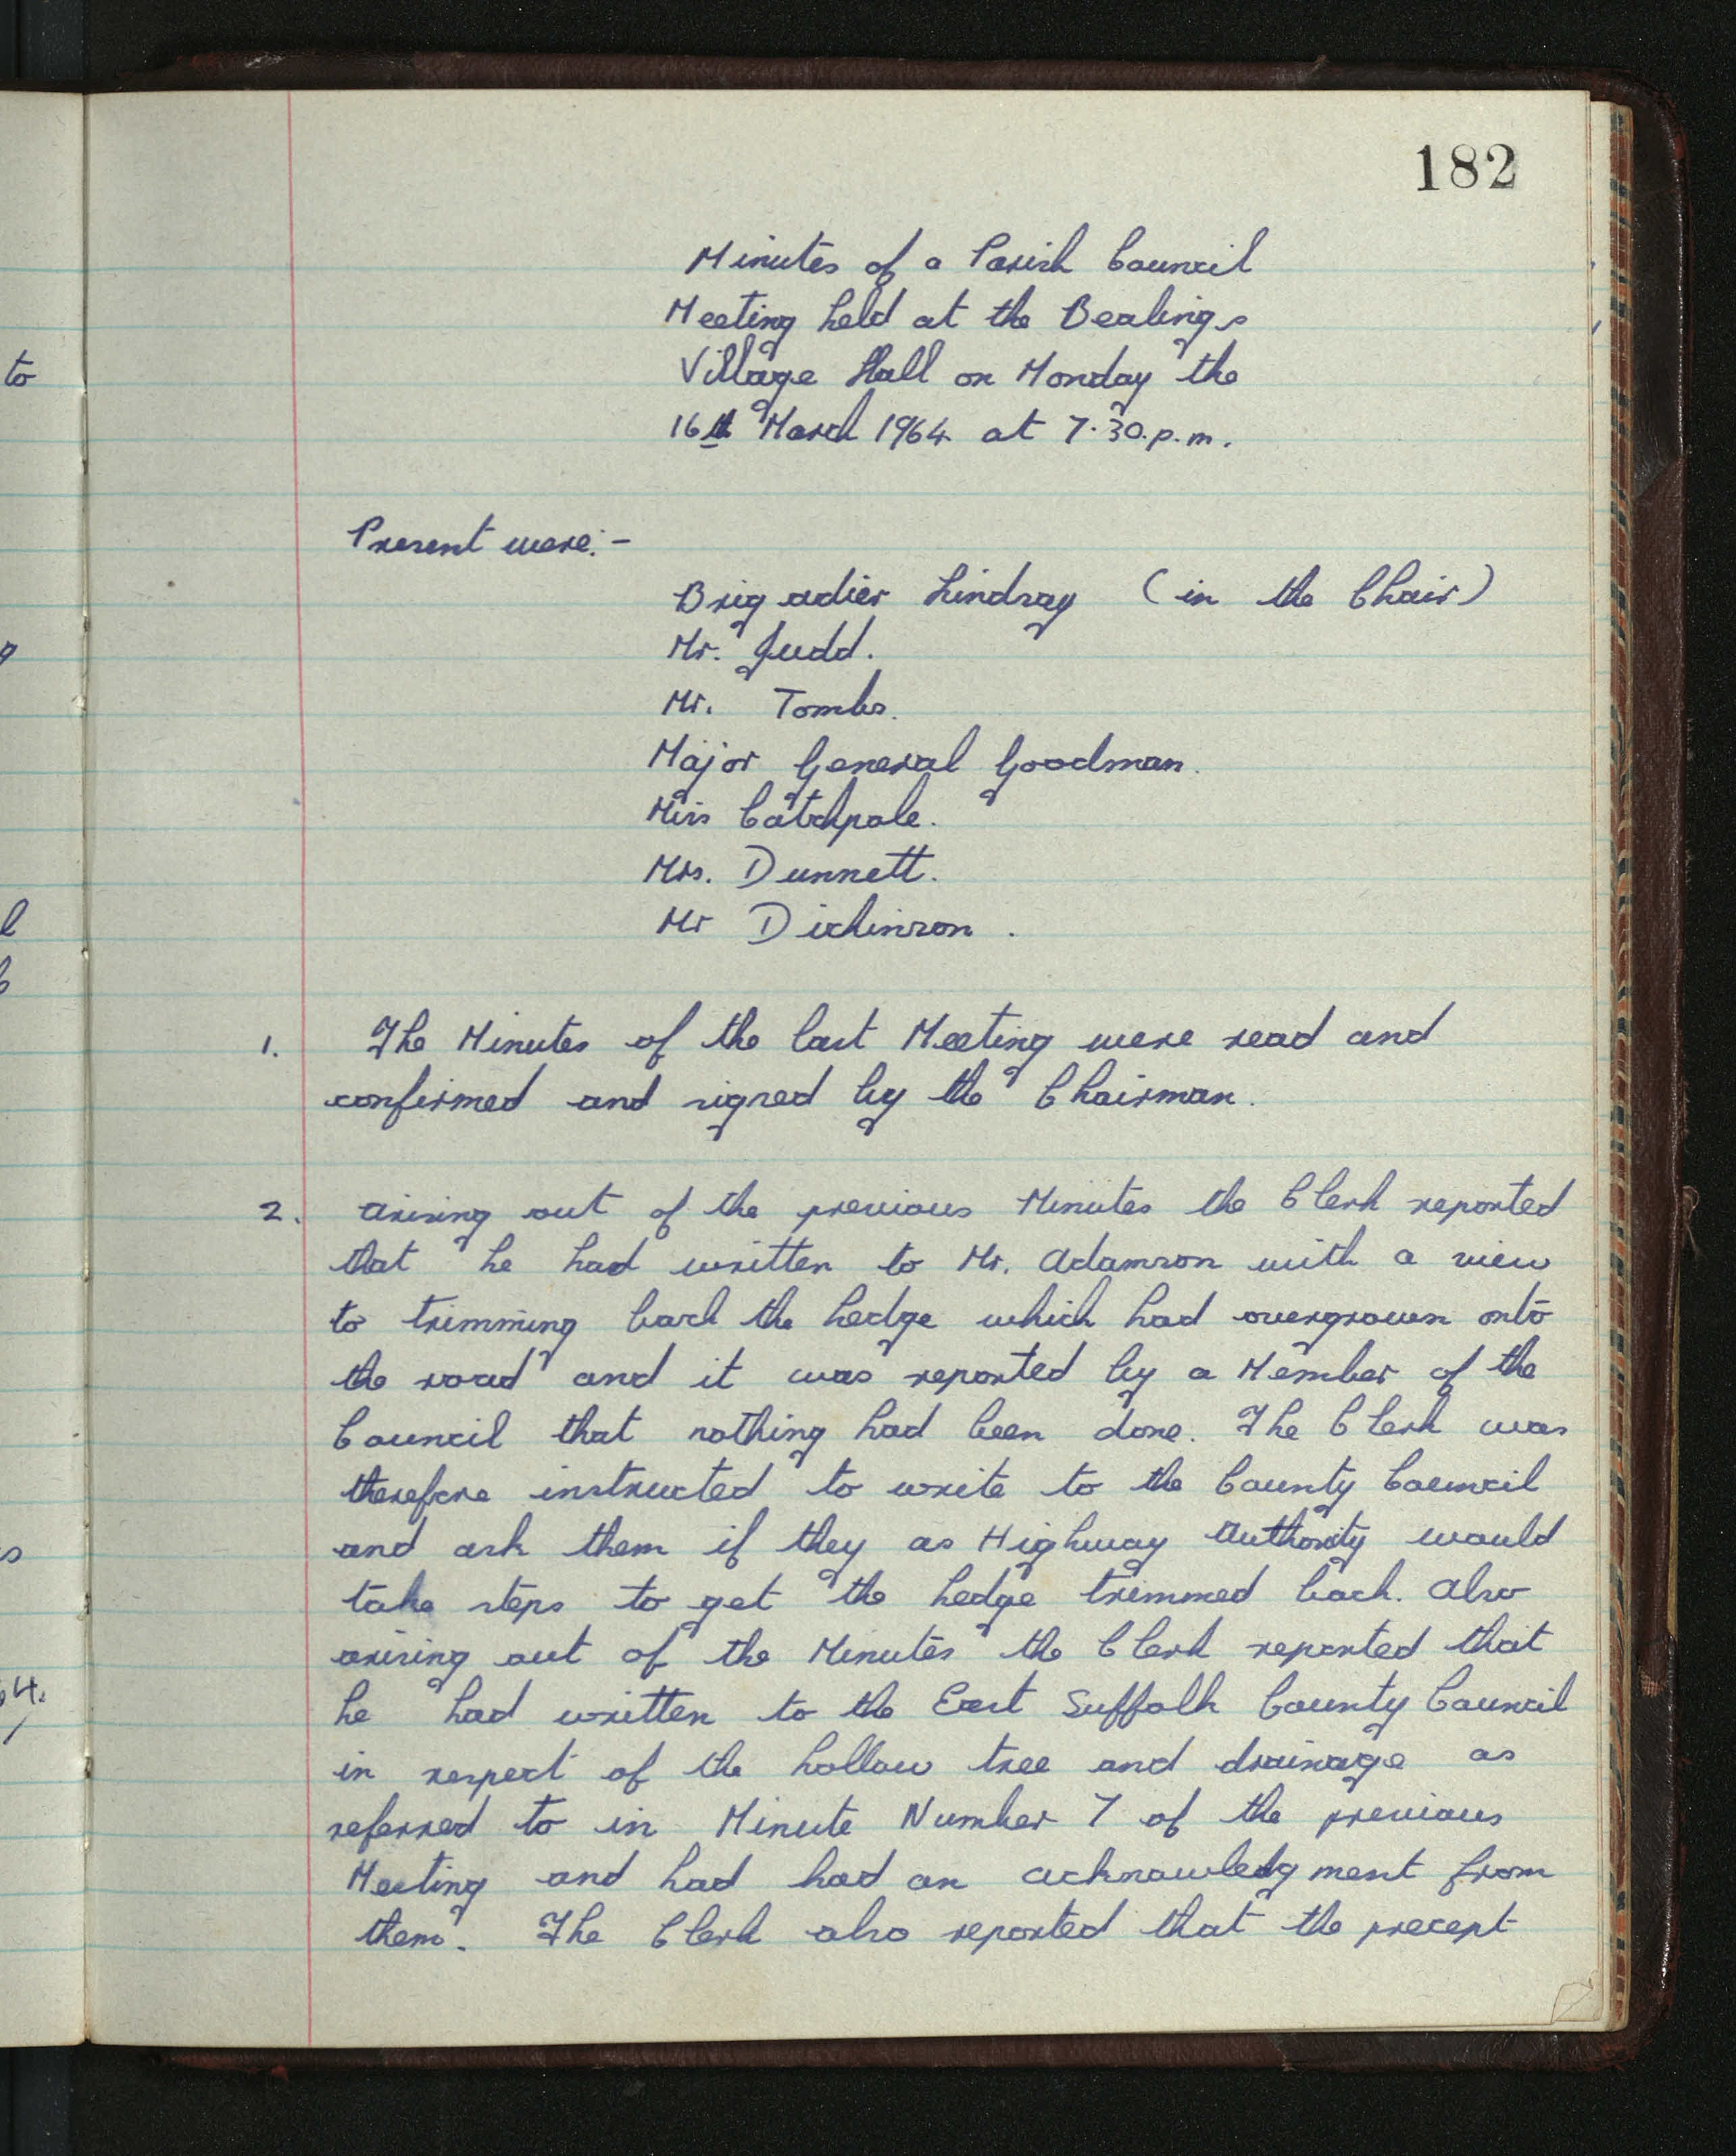 182
Minutes of a Parish Council
Meeting held at the Bealings
Village Hall on Monday the
16th March 1964 at 7.30.p.m.
Present were:-
Brigadier Lindsay (in the Chair)
Mr. Judd.
Mr. Tombs.
Major General Goodman.
Miss Catchpole.
Mrs. Dunnett.
Mr Dickinson.
1. The Minutes of the last Meeting were read and
confirmed and signed by the Chairman.
2. Arising out of the previous Minutes the Clerk reported
that he had written to Mr. Adamson with a view
to trimming back the hedge which had overgrown onto
the road and it was reported by a Member of the
Council that nothing had been done. The Clerk was
therefore instructed to write to the County Council
and ask them if they as Highway Authority would
take steps to get the hedge trimmed back. Also
arising out of the Minutes the Clerk reported that
he had written to the East Suffolk County Council
in respect of the hollow tree and drainage as
referred to in Minute Number 7 of the previous
Meeting and had had an acknowledgment from
them. The Clerk also reported that the precept